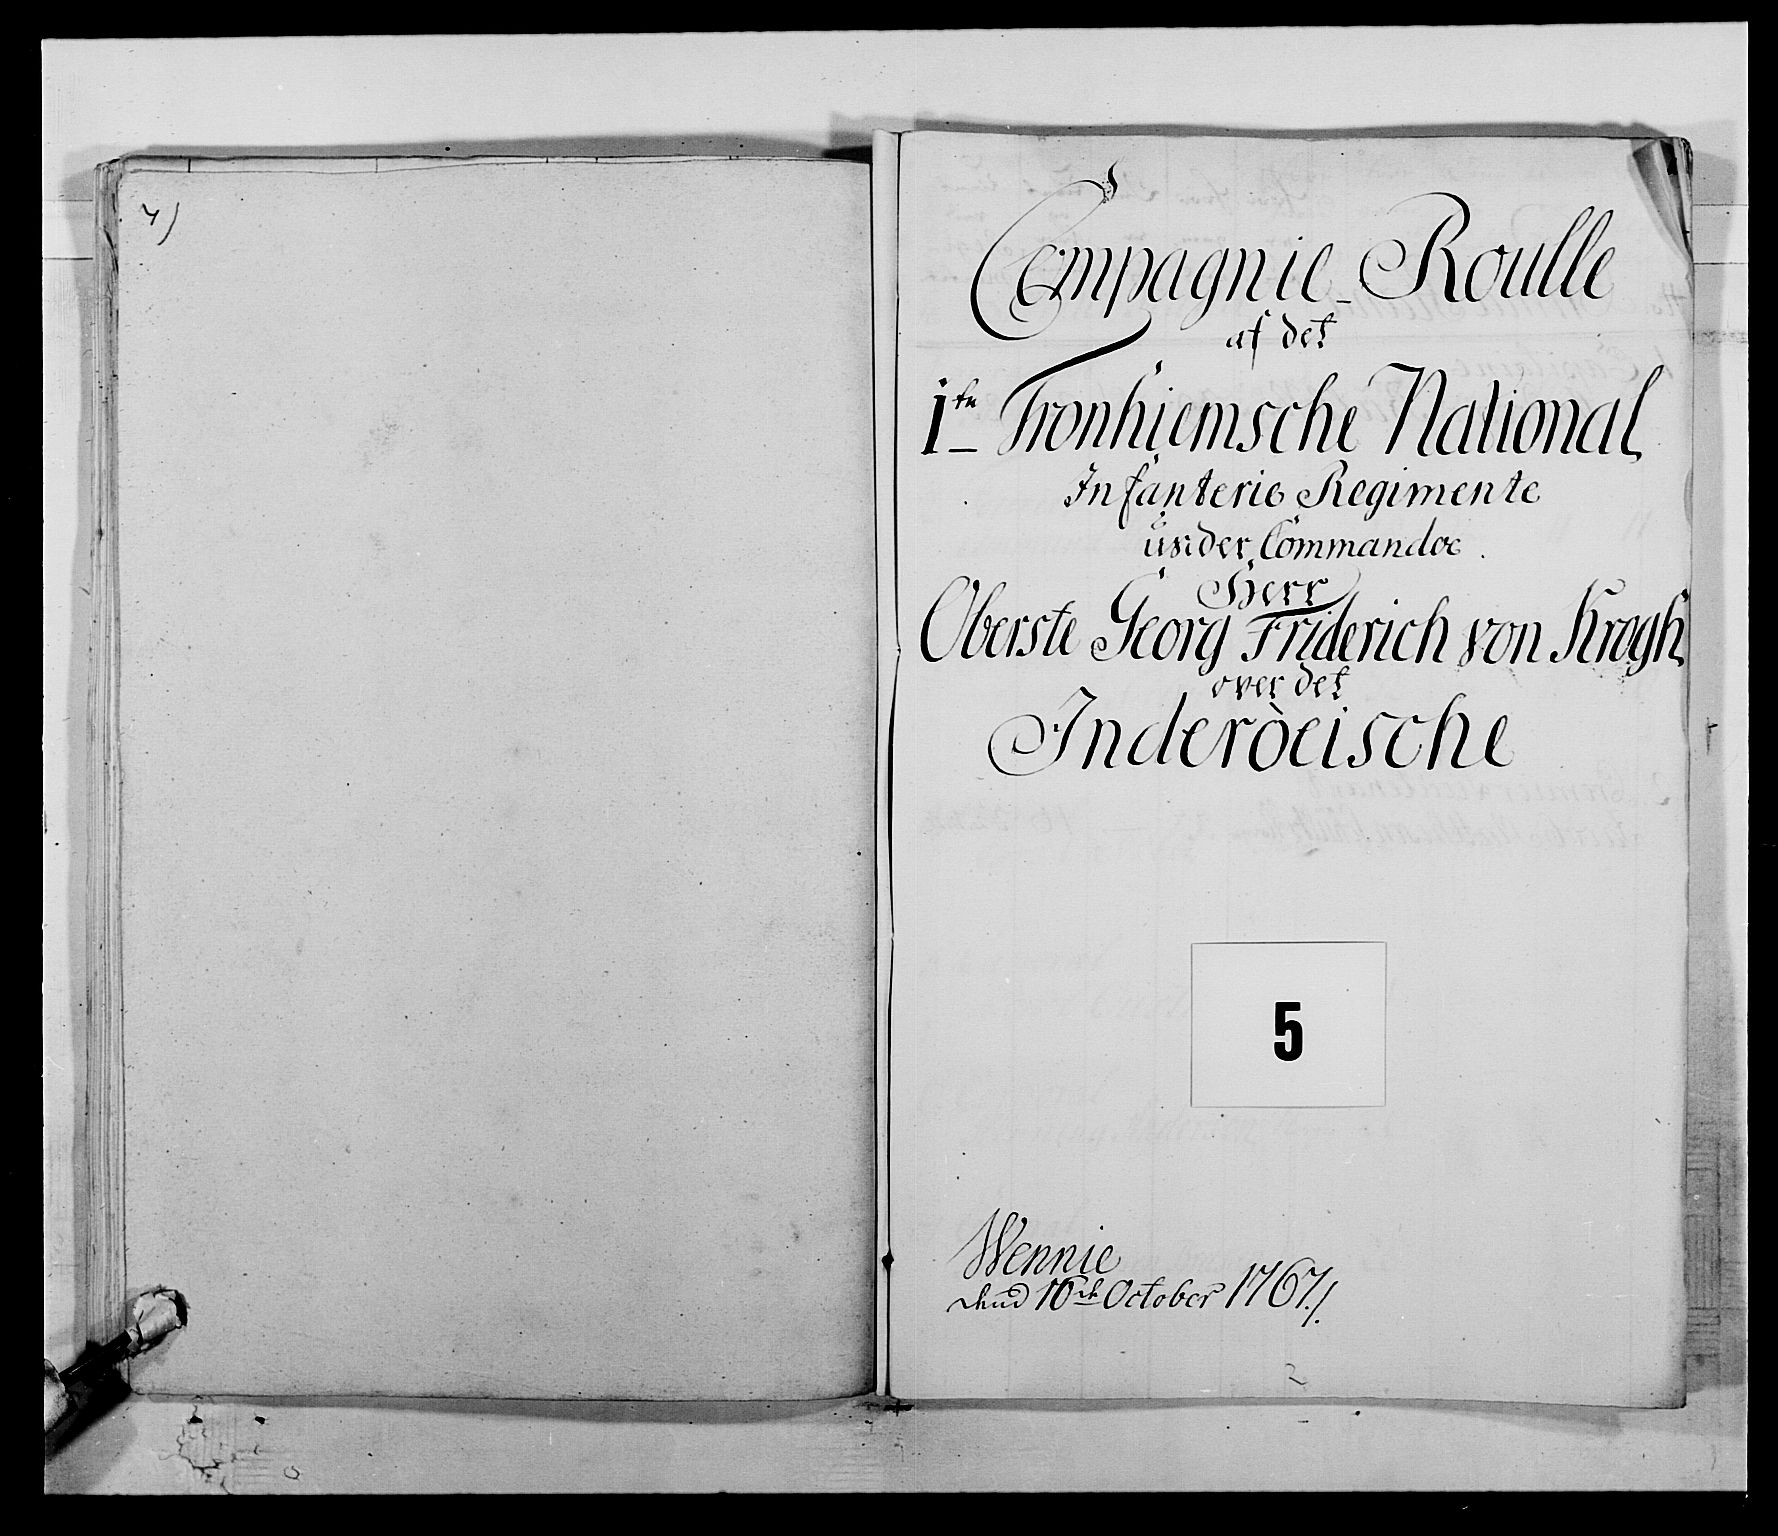 4)
Compagnie-Roulle
af det
1te Tronhiemsche National
Infanterie Regimente
under Commandoe
Herr
Oberste Georg Friderich von Krogh
over det
Inderòeische
5
Wennie
dend 16de October 1767./.
2